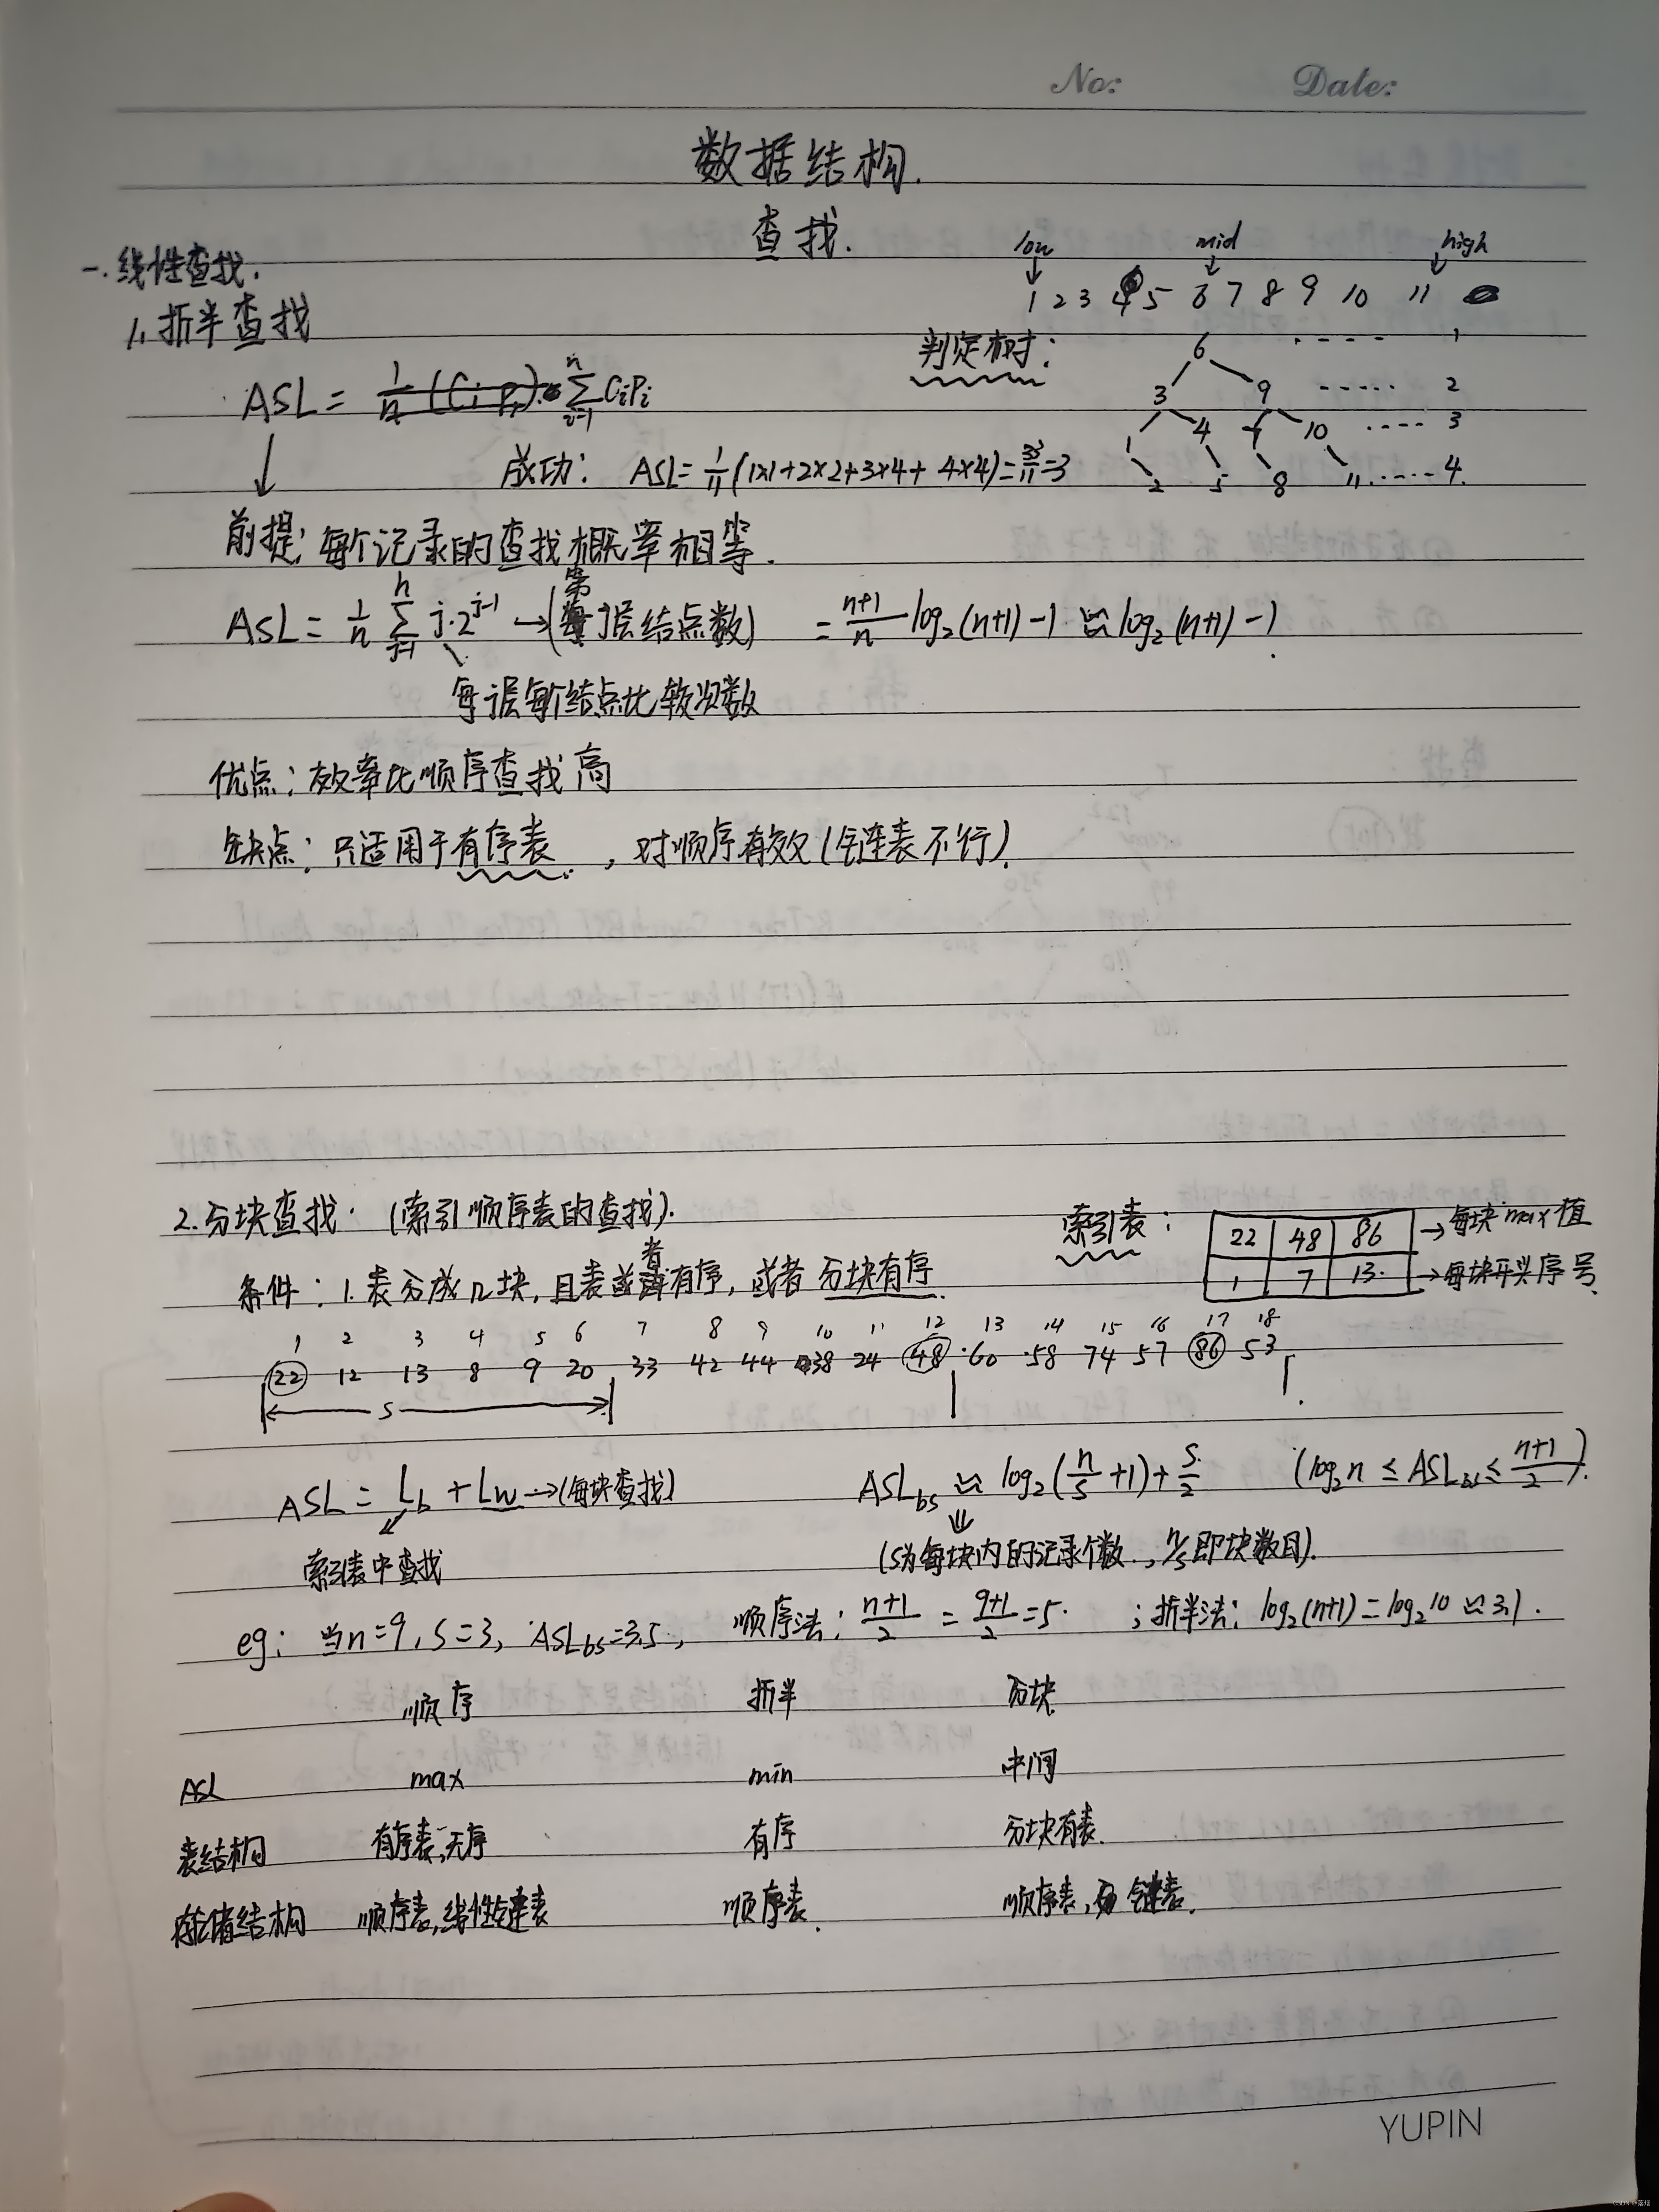 No:  Date:
数据结构.
查找.
一.线性查找.
low mid high
1 2 3 4 5 6 7 8 9 10 11
1.折半查找
判定树:
6 ---- 1
3 9 ----- 2
1 4 7 10 ---- 3
2 5 8 11 ---- 4.
ASL = ∑ CiPi
n
i=1
成功: ASL=1/11(1x1+2x2+3x4+4x4)=33/11=3
前提:每个记录的查找概率相等.
ASL = 1/n ∑ j·2^(j-1) →(第j层结点数) = (n+1)/n log₂(n+1)-1 ≈ log₂(n+1)-1.
n
j=1
每层每个结点比较次数
优点:效率比顺序查找高
缺点:只适用于有序表,对顺序有效(链表不行).
2.分块查找.(索引顺序表的查找).
索引表:
22 48 86 →每块max值
1 7 13. →每块开头序号.
条件: 1.表分成n块,且表或者有序,或者分块有序.
1 2 3 4 5 6 7 8 9 10 11 12 13 14 15 16 17 18
22 12 13 8 9 20 33 42 44 38 24 48 60 58 74 57 86 53
S
ASL = Lb + Lw →(每块查找)
ASLbs ≈ log₂(n/s+1)+s/2 (log₂n ≤ ASLbs ≤ (n+1)/2).
索引表中查找
(s为每块内的记录个数,n/s即块数目).
eg: 当n=9,S=3,ASLbs=3.5, 顺序法:(n+1)/2=(9+1)/2=5. ;折半法:log₂(n+1)=log₂10≈3.1.
顺序 折半 分块
ASL max min 中间
表结构 有序表,无序 有序 分块有表.
存储结构 顺序表,线性链表 顺序表. 顺序表,链表.
YUPIN
CSDN @落烟